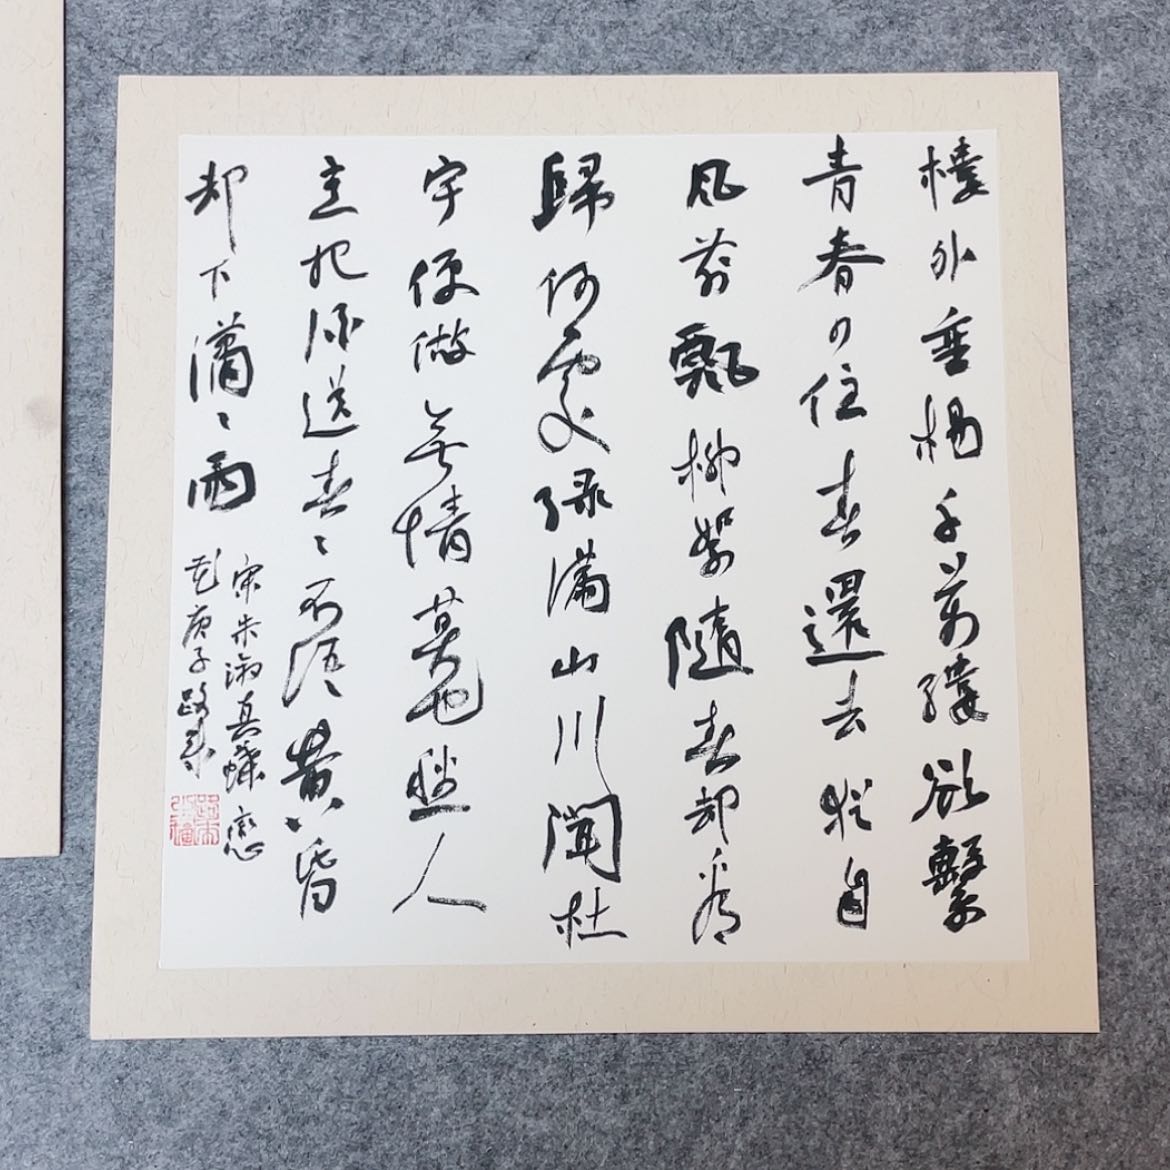 樓外垂楊千萬縷欲繫
青春少住春還去犹自
風前飄柳絮隨春却看
歸何處緑滿山川聞杜
宇便做無情莫也愁人
意把酒送春〻不語黄昏
却下瀟〻雨
宋朱淑真蝶戀
花庚子